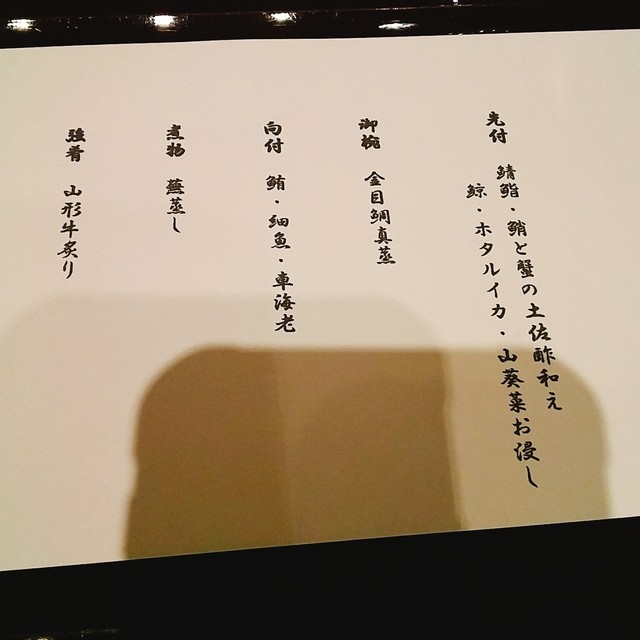 先付　鯖鮨・鮹と蟹の土佐酢和え
鯨・ホタルイカ・山葵菜お浸し
御椀　金目鯛真蒸
向付　鮪・細魚・車海老
煮物　蕪蒸し
強肴　山形牛炙り